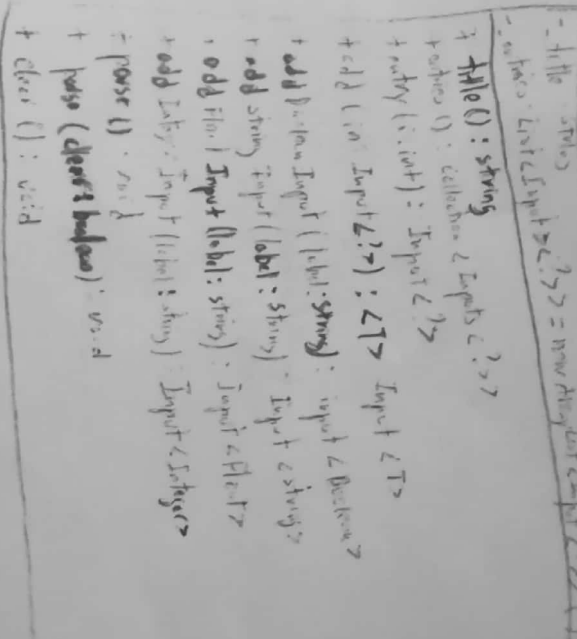 - _title : string
- _entries : List<Input<?>> = new ArrayList<Input<?>>
+ title() : string
+ entries() : Collection <Inputs <?>>
+ entry (i:int) : Input <?>
+ add (in: Input<?>) : <T> Input <T>
+ add Boolean Input (label:string) : input <Boolean>
+ add string Input (label:string) : Input <string>
+ add Float Input (label:string) : Input <Float>
+ add Integer Input (label:string) : Input <Integer>
+ parse () : void
+ parse (clear: boolean) : void
+ clear () : void